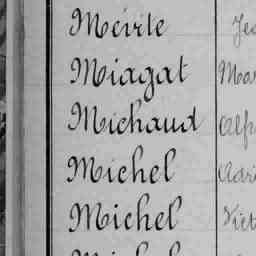 Meirte
Miagat Mar
Michaud Alp
Michel Adri
Michel Vict